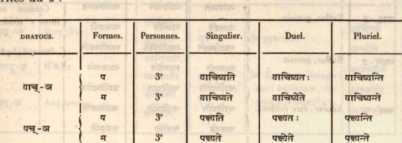 DHATOUS. Formes. Personnes. Singulier. Duel. Pluriel.
वाच्-ञ प 3ᵉ वाचिष्यति वाचिष्यतः वाचिष्यन्ति
म 3ᵉ वाचिष्यते वाचिष्येते वाचिष्यन्ते
पच्-ञ प 3ᵉ पक्ष्यति पक्ष्यतः पक्ष्यन्ति
म 3ᵉ पक्ष्यते पक्ष्येते पक्ष्यन्ते